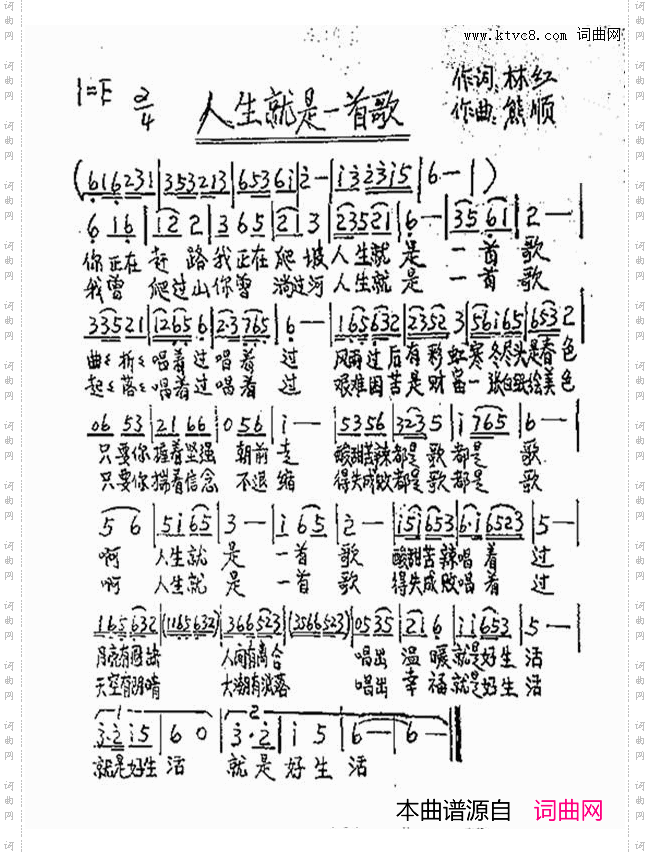 www.ktvc8.com 词曲网
1=E 2/4
人生就是一首歌
作词:林红
作曲:熊顺
(616231|353213|6536i|2—|i323i5|6—|)
6 16|i2 2|3 65|2i 3|23521|6—|35 61|2—|
你正在 赶 路我正在 爬 坡 人生就 是 一 首 歌
我曾 爬过山你曾 淌过河 人生就 是 一 首 歌
33521|12656|2·3765|6—|165632|2352 3|56i65|653 2|
曲曲折折唱着过唱着 过 风雨过后有彩虹寒冬尽头是春色
起起落落唱着过唱着 过 艰难困苦是财富一张白纸绘美色
06 53|21 66|0 56|i—|5356|3235|i 765|6—|
只要你握着坚强 朝前 走 酸甜苦辣都是歌都是 歌
只要你揣着信念 不退 缩 得失成败都是歌都是 歌
5 6|5i65|3—|i 65|2—|i5i653|6·i6523|5—|
啊 人生就 是 一首 歌 酸甜苦辣唱 着 过
啊 人生就 是 一首 歌 得失成败唱 着 过
165632|(1165632)|366523|(3566523)|0535|2i 6|ii653|5—|
月亮有圆缺 人间有离合 唱出 温 暖就是好生 活
天空有阴晴 大潮有涨落 唱出 幸 福就是好生 活
1 2
3·2i5|6 0|3·2|i 5|6—|6—||
就是好生 活 就 是 好 生 活
本曲谱源自 词曲网